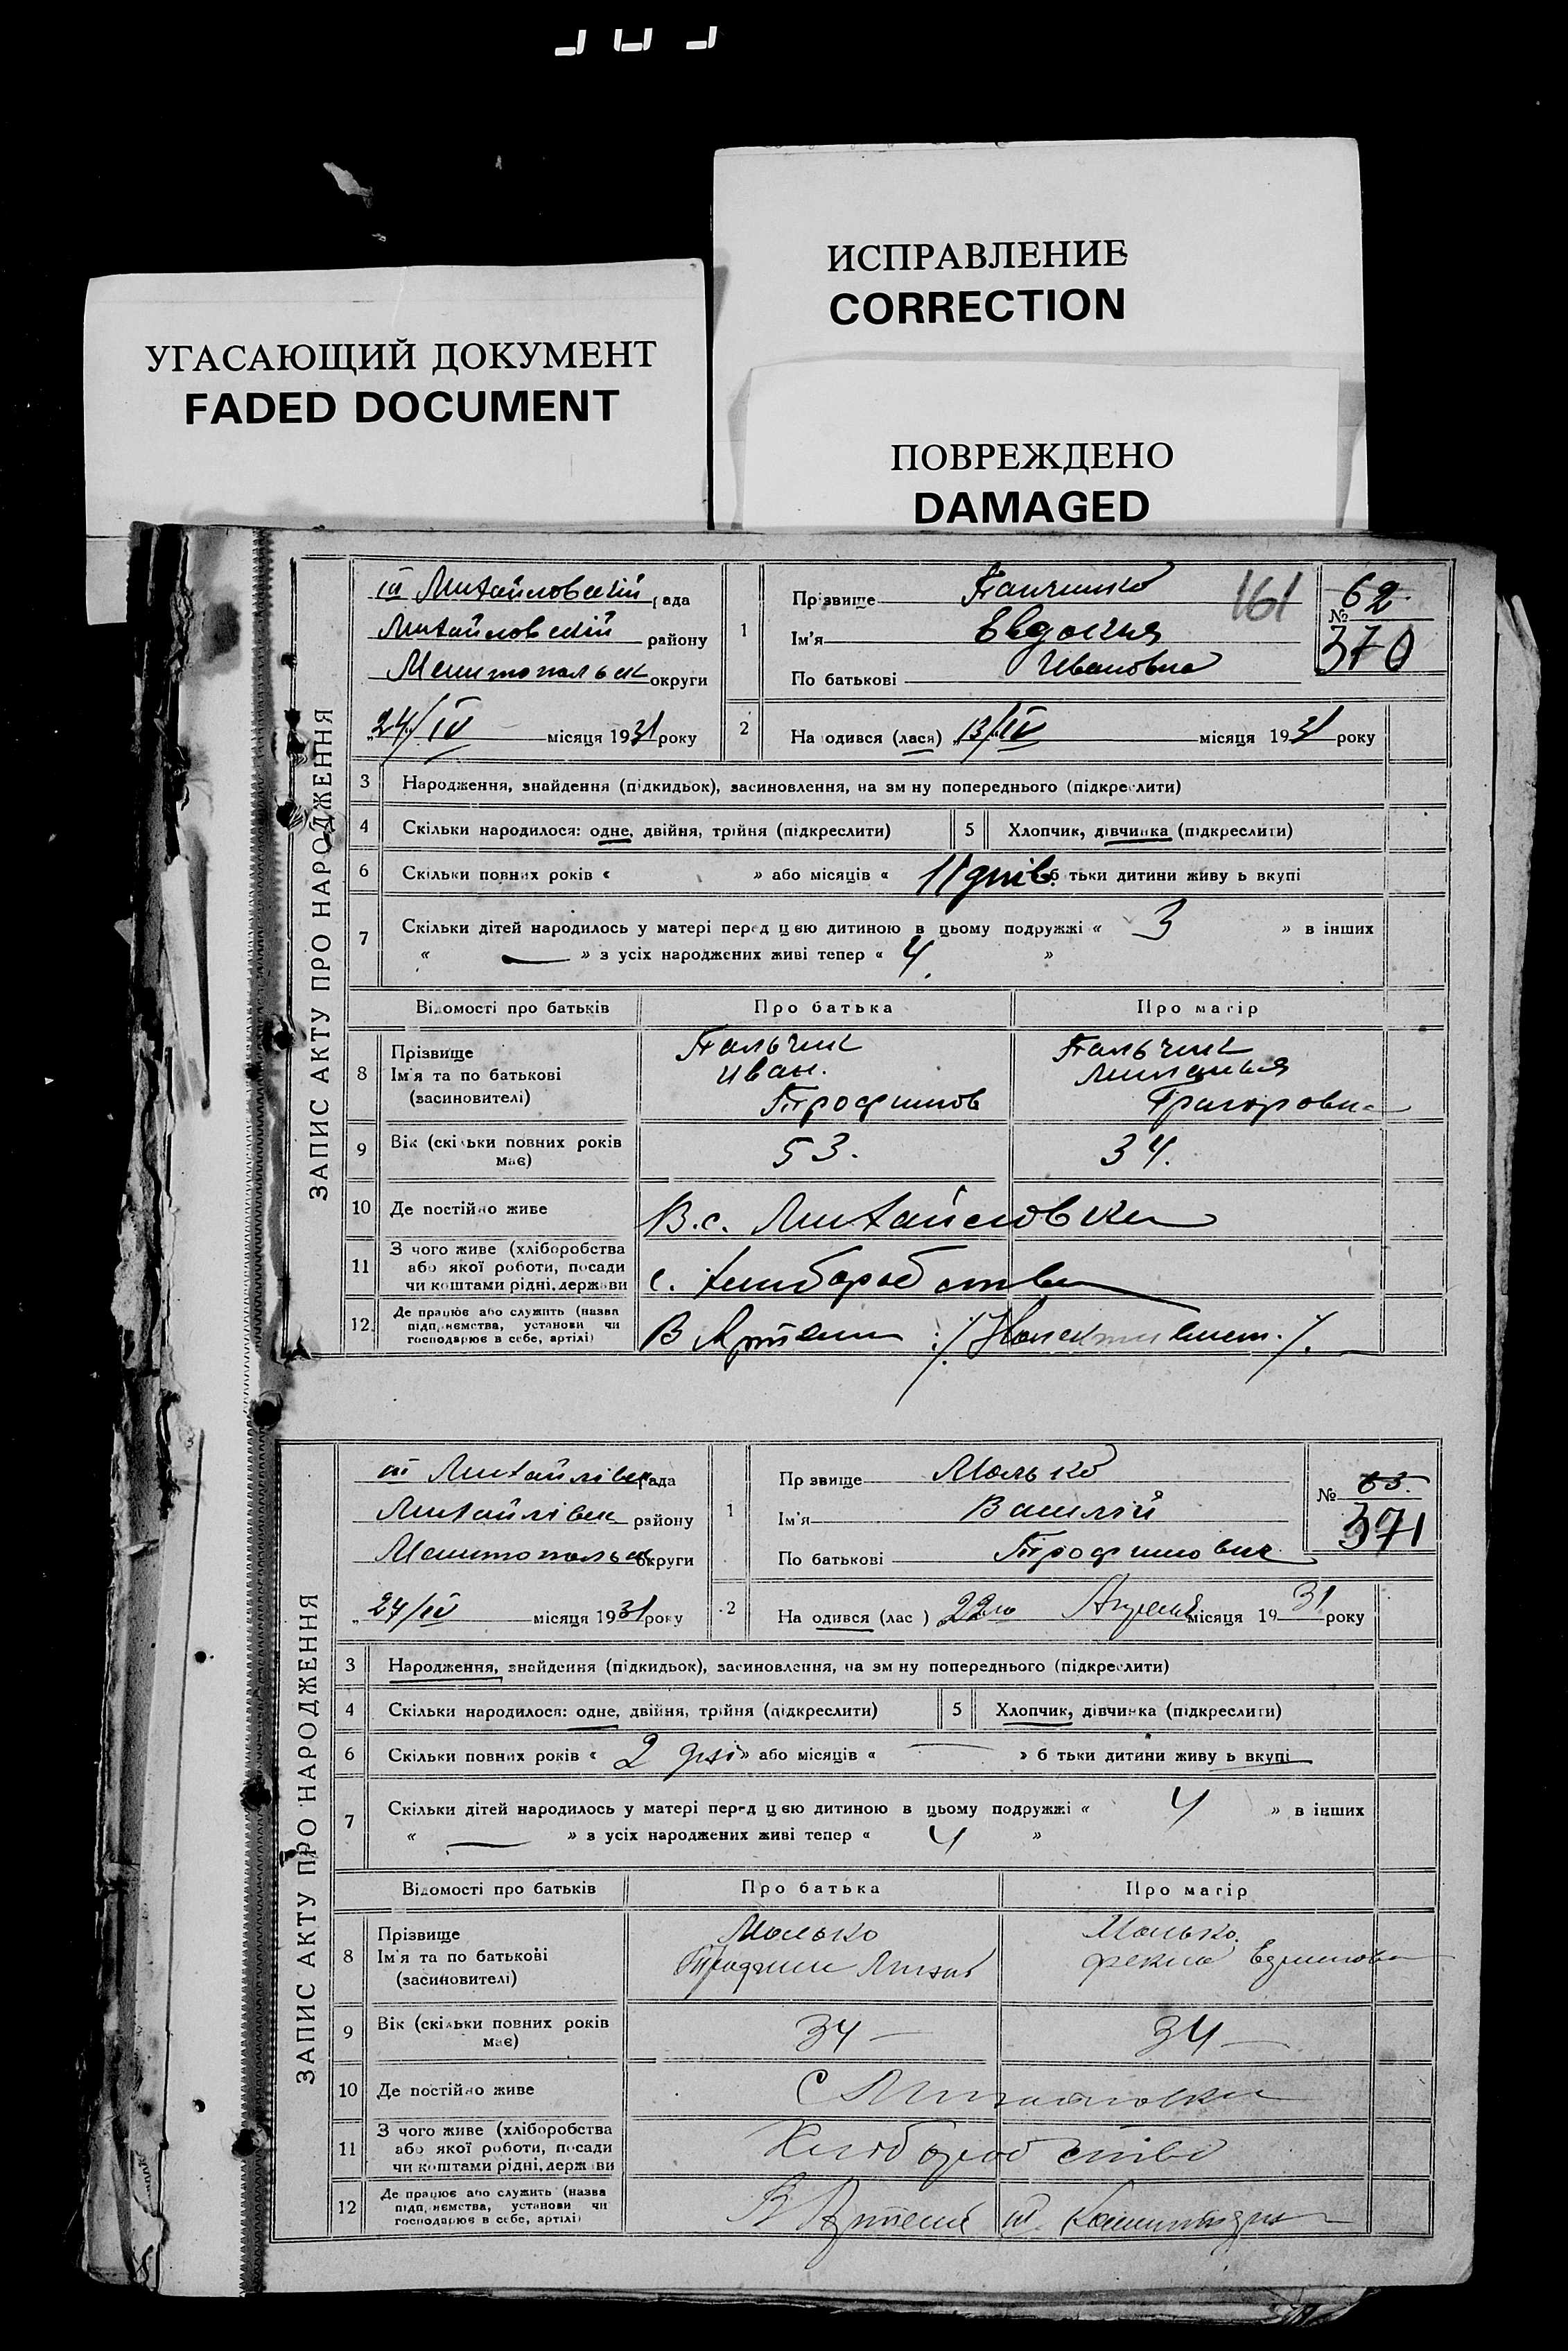 ИСПРАВЛЕНИЕ
CORRECTION
УГАСАЮЩИЙ ДОКУМЕНТ
FADED DOCUMENT
ПОВРЕЖДЕНО
DAMAGED
ЗАПИС АКТУ ПРО НАРОДЖЕННЯ
III Михайловский рада
Михайловский району
Мелитопольск округи
„24/IV місяця 1931 року
1
Прізвище 161
Ім'я Евдокия
По батькові Ивановна
№ 62
370
2 На одився (лася) „13/IV місяця 1931 року
3 Народження, знайдення (підкидьок), засиновлення, на зм ну попереднього (підкреслити)
4 Скільки народилося: одне, двійня, трійня (підкреслити) 5 Хлопчик, дівчинка (підкреслити)
6 Скільки повних років « » або місяців « 11 днів б тьки дитини живу ь вкупі
7 Скільки дітей народилось у матері перед цією дитиною в цьому подружжі « 3 » в інших
« — » з усіх народжених живі тепер « 4. »
Відомості про батьків Про батька Про матір
8 Прізвище Пальчик Пальчик
Ім'я та по батькові Иван.
(засиновителі) Трофимов Григоровна
9 Вік (скільки повних років має) 53. 34.
10 Де постійно живе В с. Михайловки
11 З чого живе (хліборобства або якої роботи, посади чи коштами рідні, держави с. хлиборобства
12. Де працює або служить (назва підп, иємства, установи чи господарює в себе, артілі) В Артели
ЗАПИС АКТУ ПРО НАРОДЖЕННЯ
III Михайлівск рада
Михайлівск району
Мелитопольск округи
„24/IV місяця 1931 року
1
Пр звище Малько
Ім'я Василій
По батькові Трофимович
№ 63.
371
2 На одився (лас ) 22го Апреля місяця 1931 року
3 Народження, знайдення (підкидьок), засиновлення, на зм ну попереднього (підкреслити)
4 Скільки народилося: одне, двійня, трійня (підкреслити) 5 Хлопчик, дівчинка (підкреслити)
6 Скільки повних років « 2 дні » або місяців « — » б тьки дитини живу ь вкупі
7 Скільки дітей народилось у матері перед цією дитиною в цьому подружжі « 4 » в інших
« — » з усіх народжених живі тепер « 4 »
Відомості про батьків Про батька Про матір
8 Прізвище Малько Малько.
Ім'я та по батькові Трофим фекла
(засиновителі)
9 Вік (скільки повних років має) 34 — 34 —
10 Де постійно живе С Михайловки
11 З чого живе (хліборобства або якої роботи, посади чи коштами рідні, держ ви Хлиборобство
12 Де працює або служить (назва підп, иємства, установи чи господарює в себе, артілі) В Артели